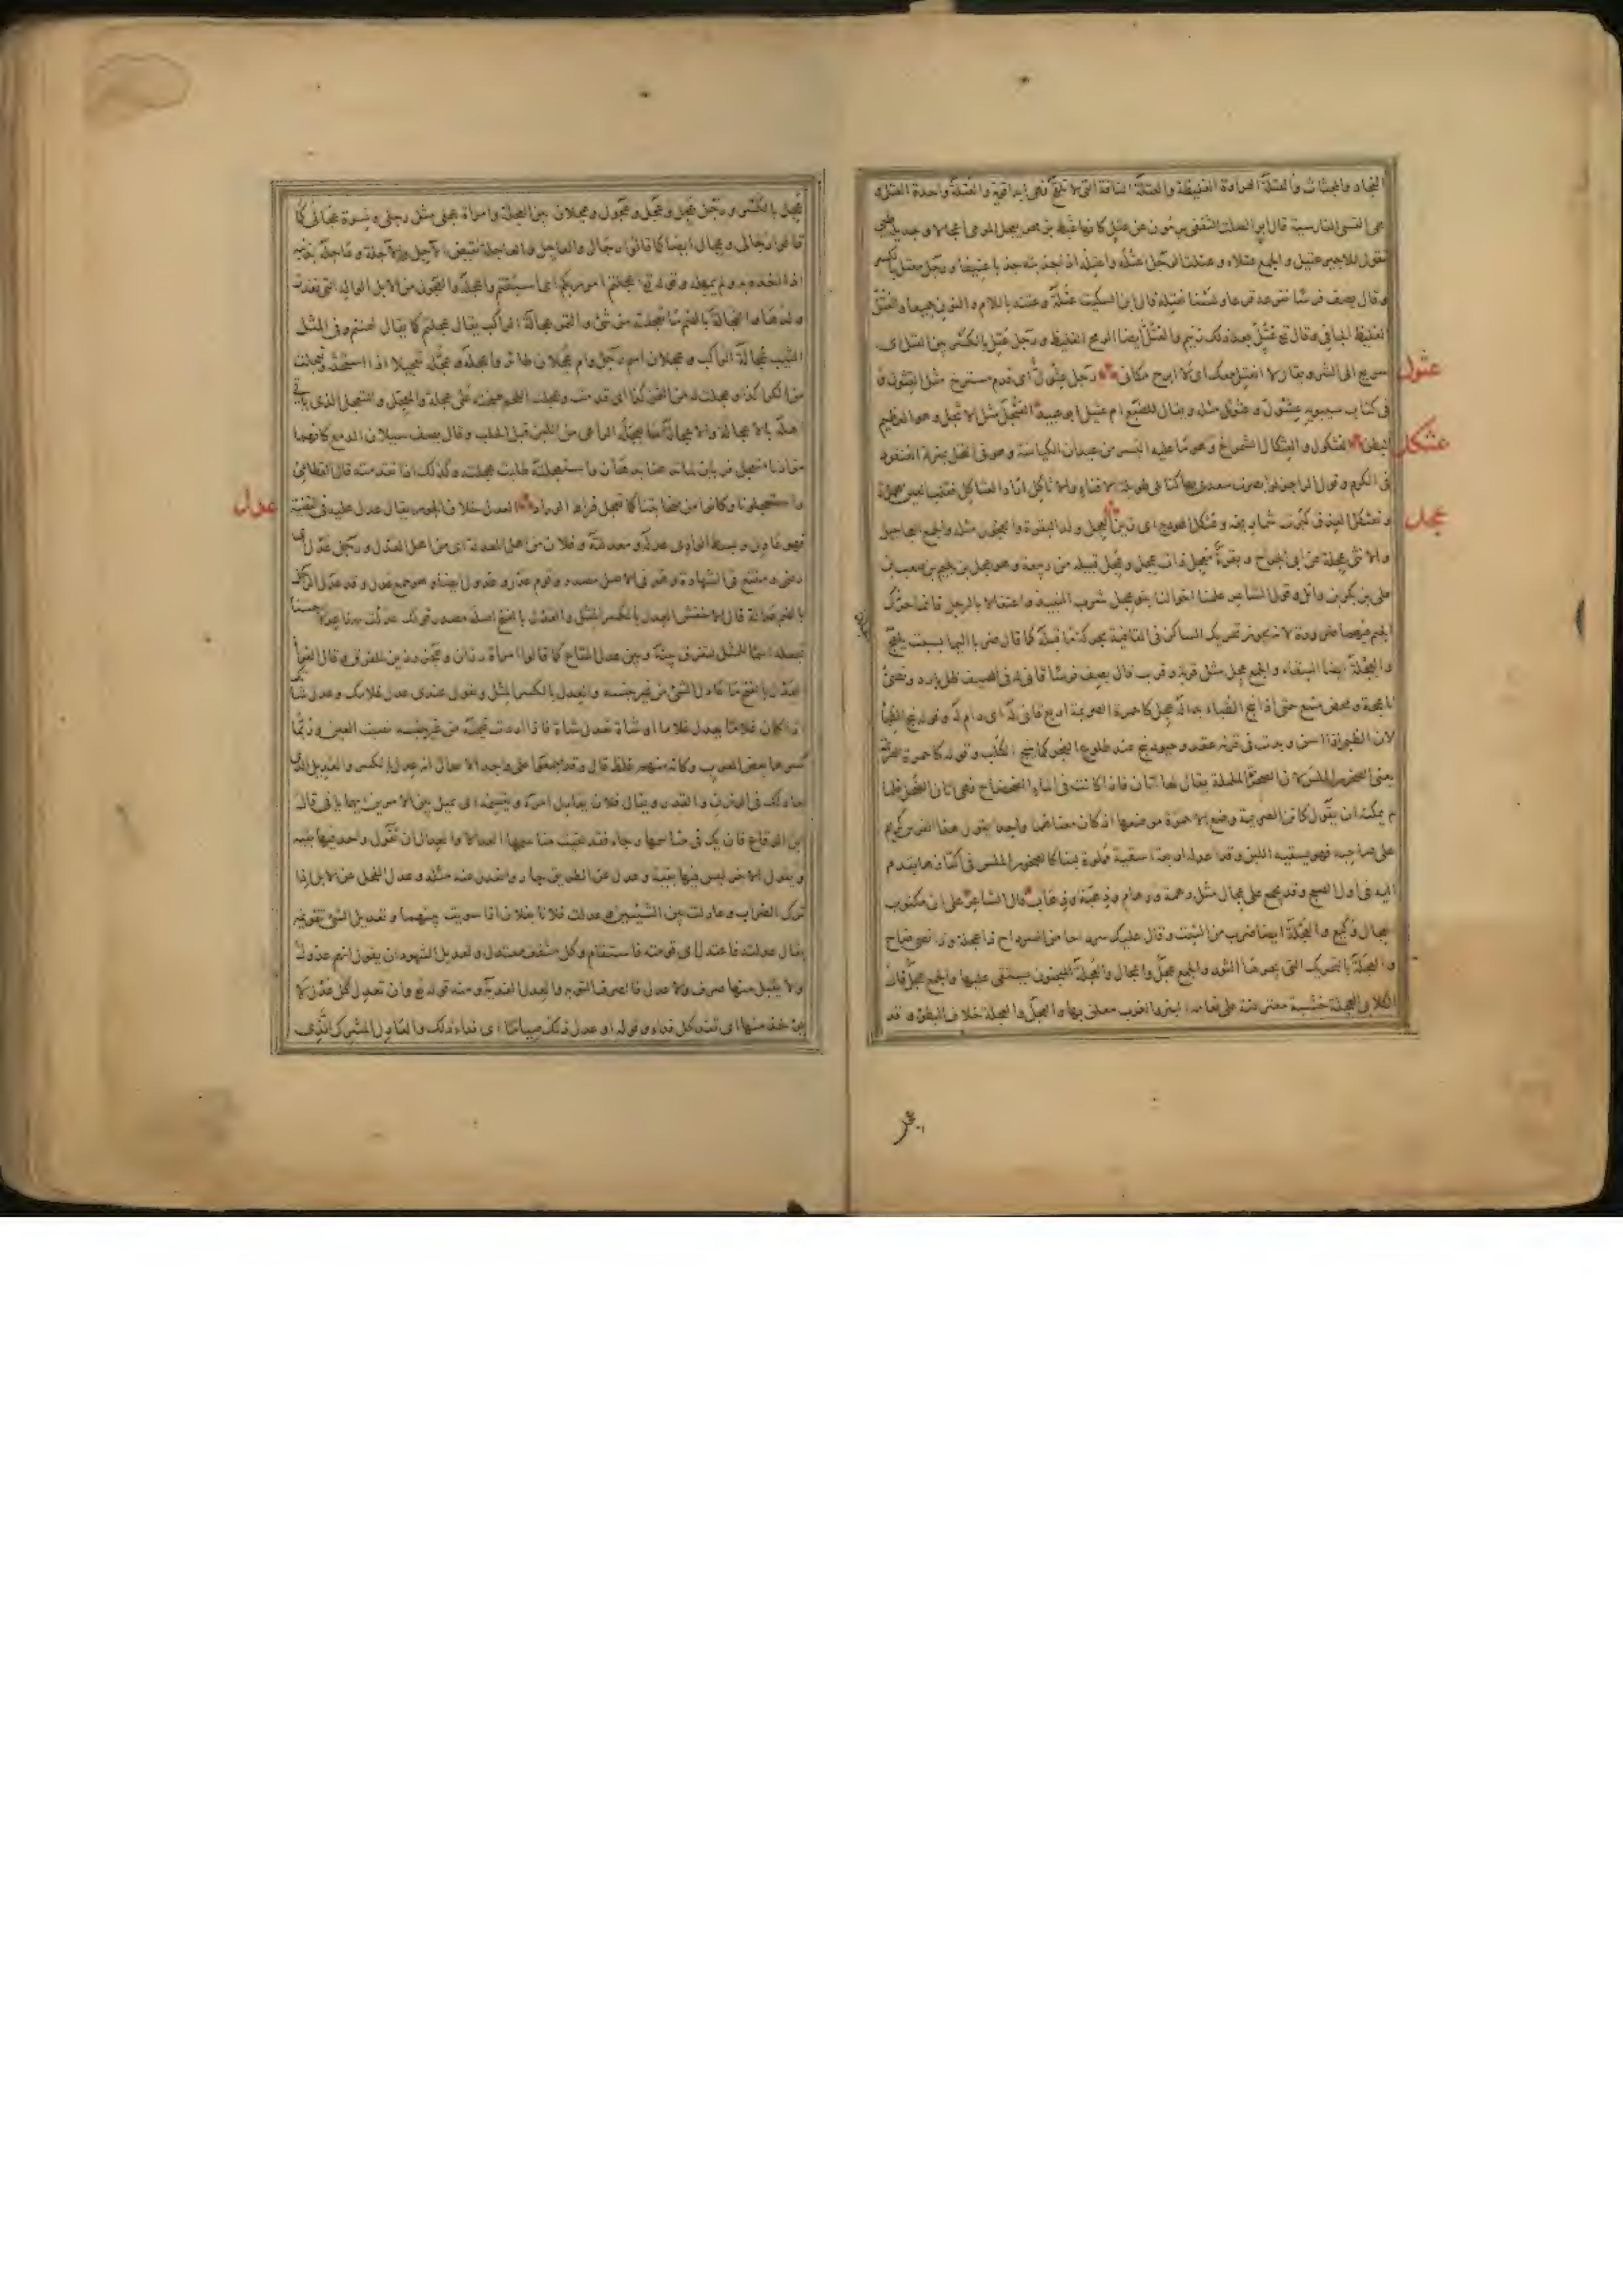 النجاد والمجثاث والعتلة الهراوة الغليظة والعتلة الناقة التى لا تلقح فهى ابدا قوية والعتلة واحدة العتل و
هى القسى الفارسية قال ابو الصلت الثقفى يرمون عن عتل كانها غبط بزمخر يعجل المرمى اعجالا وجديلة طيئ
تقول للاجير عتيل والجمع عتلاء وعتلت الرجل اعتله واعتله اذا جذبته جذبا عنيفا ورجل معتل بالكسر
وقال يصف فرسا نفرعه فرعا ولسنا نعتله قال ابن السكيت عتله وعتنه باللام والنون جميعا والعتل
الغليظ الجافى وقال تع عتل بعد ذلك زنيم والعتل ايضا الرمح الغليظ ورجل عتل بالكسر بين العتل اى
سريع الى الشر ويقال لا انعتل معك اى لا ابرح مكانى رجل عثول اى فدم مسترخ مثل القثول و
فى كتاب سيبويه عثوثل مثله ويقال للضبع ام عثيل ابو عبيد العثجل مثل الاثجل وهو العظيم
البطن العثكول والعثكال الشمراخ وهو ما عليه البسر من عيدان الكباسة وهو فى النخل بمنزلة العنقود
فى الكرم وقول الراجز
وتعثكل العذق كثرت شماريخه وعثكل الهودج اى زين العجل ولد البقرة والعجول مثله والجمع العجاجيل
والانثى عجلة عن ابى الجراح وبقرة معجل ذات عجل وعجل قبيلة من ربيعة وهو عجل بن لجيم بن صعب بن
على بن بكر بن وائل وقول الشاعر علمنا اخوالنا بنو عجل شرب النبيذ واعتقالا بالرجل فانما حرك
الجيم فيهما ضرورة لانه يجوز تحريك الساكن فى القافية بحركة ما قبله كما قال ضربا اليما بسبت يلعج
والعجلة ايضا السقاء والجمع عجل مثل قربة وقرب قال يصف فرسا قانى له فى الصيف ظل بارد ونصى
ناعجة ومحض منقع حتى اذا نبح الظباء بدا له عجل كاحمرة الصريمة اربع قانى له اى دام له وقوله نبح الظباء
لان الظبى اذا اسن وبدت فى قرنه عقد وحيود نبح عند طلوع الفجر كما ينبح الكلب وقوله كاحمرة الصريمة
يعنى الصخور الملس لان الصخرة الململمة يقال لها اتان فاذا كانت فى الماء الضحضاح فهى اتان الضحل فلما
لم يمكنه ان يقول كاتن الصريمة وضع الاحمرة موضعها اذ كان معناهما واحدا يقول هذا الفرس كريم
على صاحبه فهو يسقيه اللبن وقد اعد له اربعة اسقية مملوة لبنا كالصخور الملس فى اكتنازها يقدم
اليه فى اول الصبح وقد يجمع على عجال مثل رهمة ورهام وذهبة وذهاب قال الشاعر على ان مكتوب
العجال وكيع والعجلة ايضا ضرب من النبت وقال عليك سرداحا من السرداح ذا عجلة وذا نصى ضاح
والعجلة بالتحريك التى يجرها الثور والجمع عجل واعجال والعجلة المنجنون يستقى عليها والجمع عجل قال
الكلابى العجلة خشبة معترضة على نعامة البئر والغرب معلق بها والعجل والعجلة خلاف البطؤ وقد
عثول
عثكل
عجل
عجل بالكسر ورجل عجل وعجل وعجول وعجلان بين العجلة وامراة عجلى مثل رجلى ونسوة عجالى كما
قالوا رجالى وعجال ايضا كما قالوا رجال والعاجل والعاجلة نقيض الآجل والآجلة وعاجله بذنبه
اذا اخذه به ولم يمهله وقوله تع اعجلتم امر ربكم اى اسبقتم واعجله والعجول من الابل الواله التى فقدت
ولدها والعجالة بالضم ما تعجلته من شئ والتمر عجالة الراكب يقال عجلتم كما يقال لهنتم وفى المثل
الثيب عجالة الراكب وعجلان اسم رجل وام عجلان طائر واعجله وعجله تعجيلا اذا استحثه وتعجلت
من الكراء كذا وعجلت له من الثمن كذا اى قدمت وعجلت اللحم طبخته على عجلة والمعجل والمتعجل الذى ياتى
اهله بالاعجالة والاعجالة ما يعجله الراعى من اللبن قبل الحلب وقال يصف سيلان الدمع كانهما
مزادتا متعجل فريان لما تدهنا بدهان واستعجلته طلبت عجلته وكذلك اذا تقدمته قال القطامى
واستعجلونا وكانوا من صحابتنا كما تعجل فراط لوراد العدل خلاف الجور يقال عدل عليه فى القضية
فهو عادل وبسط الوالى عدله ومعدلته وفلان من اهل المعدلة اى من اهل العدل ورجل عدل اى
رضى ومقنع فى الشهادة وهو فى الاصل مصدر وقوم عدل وعدول ايضا وهو جمع عدل وقد عدل الرجل
بالضم عدالة قال الاخفش العدل بالكسر المثل والعدل بالفتح اصله مصدر قولك عدلت بهذا عدلا حسنا
تجعله اسما للمثل لتفرق بينه وبين عدل المتاع كما قالوا امراة رزان وعجز رزين للفرق وقال الفراء
العدل بالفتح ما عادل الشئ من غير جنسه والعدل بالكسر المثل وتقول عندى عدل غلامك وعدل شاتك
اذا كان غلاما يعدل غلاما او شاة تعدل شاة فاذا اردت قيمته من غير جنسه نصبت العين وربما
كسرها بعض العرب وكانه منهم غلط قال وقد اجمعوا على واحد الاعدال انه عدل بالكسر والعديل الذى
يعادلك فى الوزن والقدر ويقال فلان يعادل امره ويقسمه اى يميل بين الامرين ايهما ياتى قال
ابن الرقاع فان يك فى مناسمها رجاء فقد لقيت مناسمها العدالا والعدال ان تقول واحد فيها بقية
ويقول الاخر ليس فيها بقية وعدل عن الطريق جار وانعدل عنه مثله وعدل الفحل عن الابل اذا
ترك الضراب وعادلت بين الشيئين وعدلت فلانا بفلان اذا سويت بينهما وتعديل الشئ تقويمه
يقال عدلته فاعتدل اى قومته فاستقام وكل مثقف معتدل وتعديل الشهود ان يقول انهم عدول
ولا يقبل منها صرف ولا عدل فالصرف التوبة والعدل الفدية ومنه قوله تع وان تعدل كل عدل لا
يؤخذ منها اى تفد كل فداء وقوله او عدل ذلك صياما اى فداء ذلك والعادل المشرك الذى
عدل